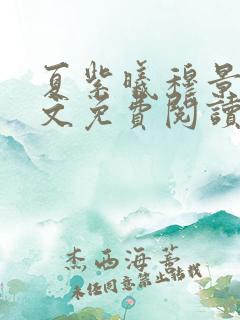 夏紫曦穆景
文免費閱讀
杰西海蒂
未经同意禁止转载